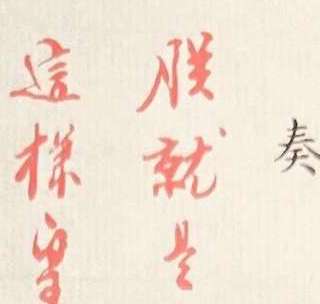 奏
朕就是
這樣皇